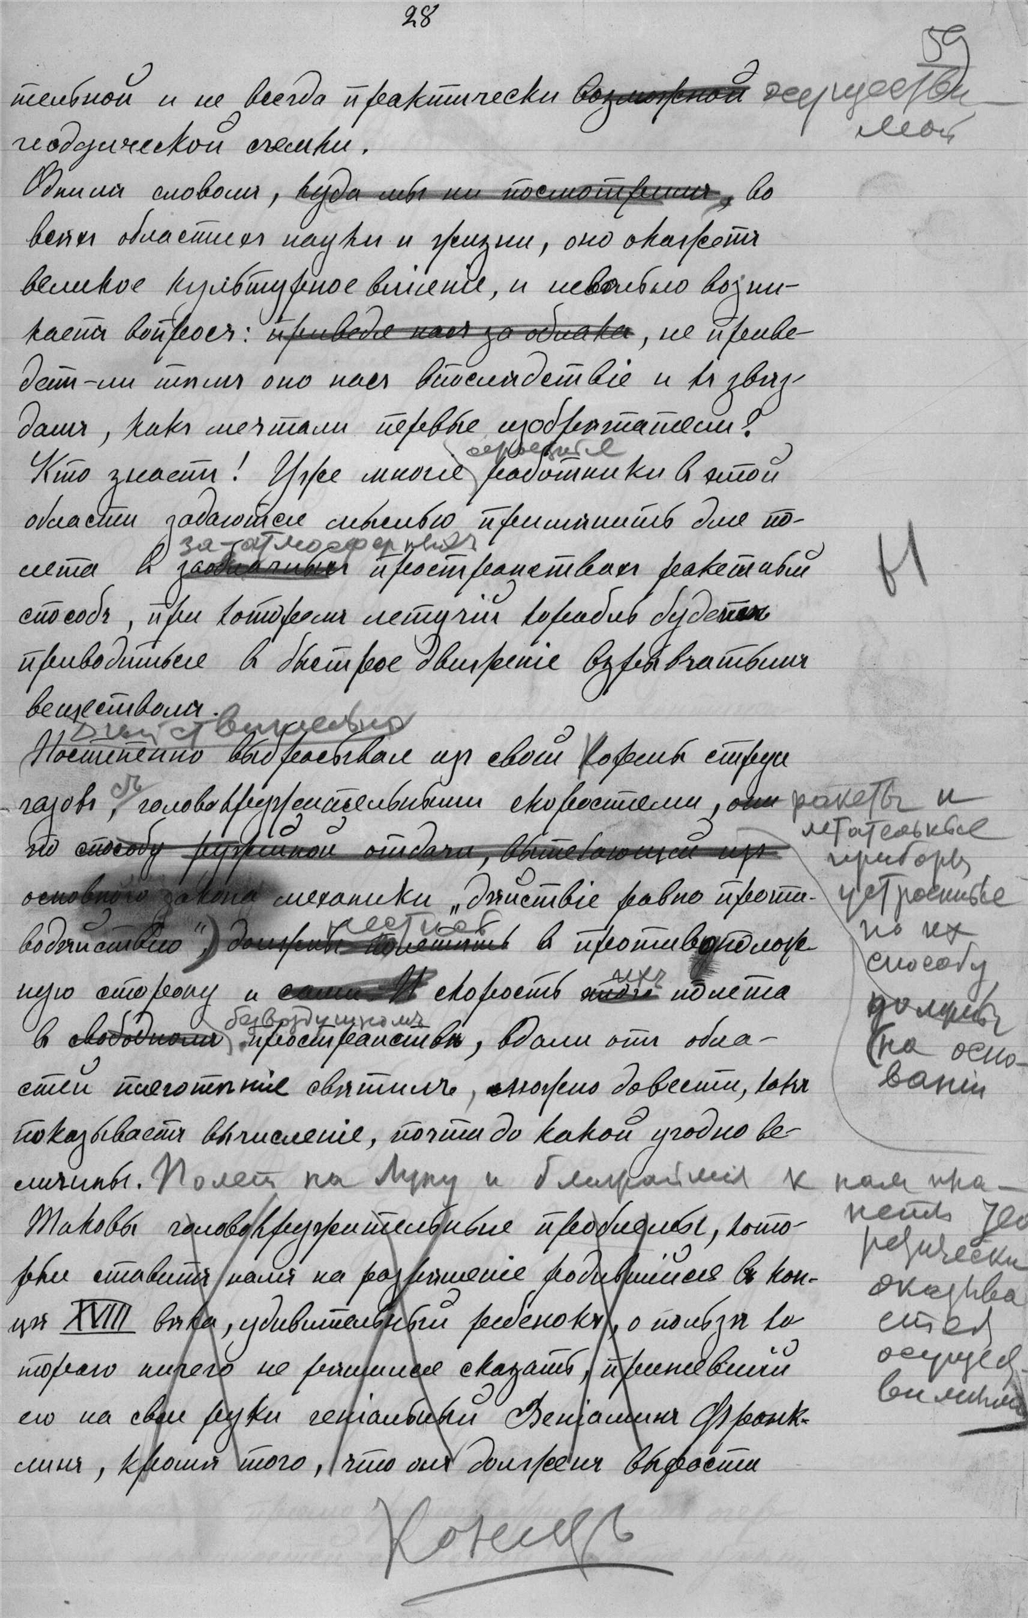 28
59
тельной и не всегда практически возможной осуществи-
мой
геодезической съемки.
Одним словом, куда мы ни посмотрим, во
всех областях науки и жизни, оно окажет
великое культурное вліяніе, и невольно возни-
кает вопрос: приведя нас за облака, не приве-
дет-ли там оно нас впоследствіе и к звез-
дам, как мечтали первые изобретатели?
серьезные
Кто знает! Уже многіе работники в этой
области задаются мыслью применить для по-
за-атмосферных
лета в заоблачных пространствах ракетный
способ, при котором летучій корабль будет
приводиться в быстрое движеніе взрывчатыми
веществами.
Действительно
Постепенно выбрасывая из своей кормы струи
газов с головокружительными скоростями, они
ракеты и
летательные
приборы
устроенные
по их
способу
должны
(на осно-
ваніи
по способу ружейной отдачи, вытекающей из
основного закона механики „действіе равно проти-
водействію", должны полететь в противополож
ную сторону и сами. И скорость их полета
безвоздушном
в свободном пространстве, вдали от обла-
стей тяготеніе светил, можно довести, как
показывает вычисленіе, почти до какой угодно ве-
личины. Полет на Луну и ближайшія к нам пла-
неты тео
ретически
оказыва
ется
осущест
вимым
Таковы головокружительные проблемы, кото-
рые ставит нам на разрешеніе родившійся в кон-
це XVIII века, удивительный ребенок, о пользе ко
торого ничего не решился сказать, принявшій
его на свои руки геніальный Веніамин Франк-
лин, кроме того, что он должен вырасти
Конецъ